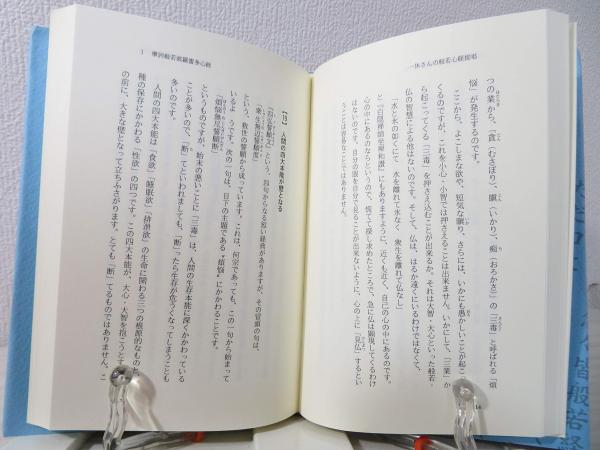 一休さんの般若心経提唱
つの業から、「貪(むさぼり)、瞋(いかり)、痴(おろかさ)」の「三毒」と呼ばれる「煩
悩」が発生するのです。
ここから、よこしまな欲や、短気な嘱り、さらには、いかにも愚かしいことが起こ
くるのですが、これを小心・小智では押さえることは出来ません。いかにして、「三業」か
ら起こってくる「三毒」を押さえ込むことが出来るか。それは大智・大心といった般若・
仏の智慧による他はないのです。そして、仏は、はるか遠くにいるわけではなくて、
「水と氷の如くにて 水を離れて氷なく 衆生を離れて仏なし」
と『白隠禅師坐禅和讃』にもありますように、近くも近く、自己の心の中にあるのです。
心の中にあるのならというので、慌てて探し求めたところで、急に仏は顕現してくるわけ
はないのです。自分の眼を自分で見ることが出来ないように、心の上に「見仏」するとい
うことは容易なことではないのです。
14
1 摩訶般若波羅蜜多心経
【15】 人間の四大本能が壁となる
『四弘誓願文』という、四句からなる短い経典がありますが、その冒頭の句は、
「衆生無辺誓願度」
という、救世の誓願から成っています。これは、何宗であっても、この一句から始まって
いるようです。次の一句は、目下の主題である〝煩悩〟にかかわることで、
「煩悩無尽誓願断」
というものですが、始末の悪いことに「三毒」は、人間の生存本能に深くかかわっている
ことが多いので、「断」てといわれましても、「断」ったら生存が危うくなってしまうことも
多いのです。
人間の四大本能は「食欲」「睡眠欲」「排泄欲」の生命に関わる三つの根源的なものと、
種の保存にかかわる「性欲」の四つです。この四大本能が、大心・大智を抱こうとす
の前に、大きな壁となって立ちふさがります。とても「断」てるものではありません。こ
般若経